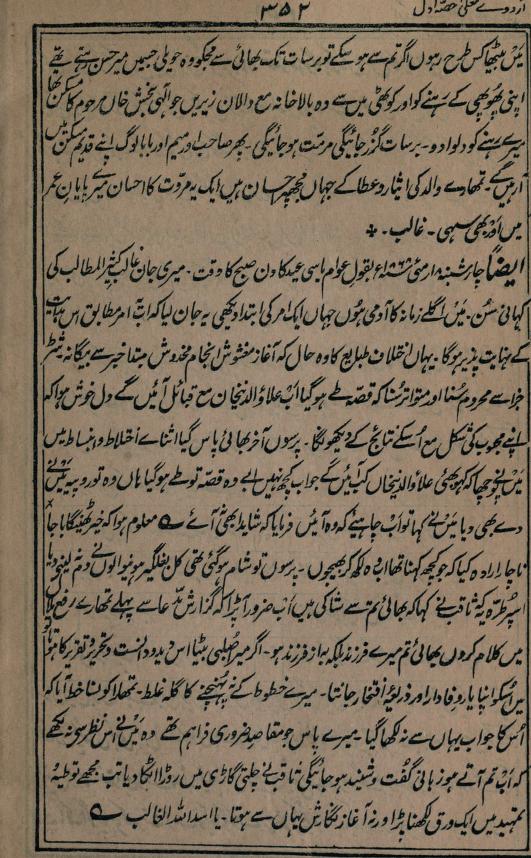 اردوے معلیٰ حصّہ اول ۳۵۲
میں بیٹھا کس طرح رہوں اگر تم سے ہو سکے تو برسات تک بھائی سے مجکو وہ حویلی جسمیں میر حسن رہتے تھے
اپنی پھوپھی کے رہنے کو اور کوٹھی میں سے وہ بالاخانہ مع دالان زیریں جو الٰہی بخش خاں مرحوم کا مسکن تھا
میرے رہنے کو دلوادو۔ برسات گزر جائیگی مرمت ہو جائیگی۔ پھر صاحب اور میم اور بابا لوگ اپنے قدیم مسکن میں
آ رہیں گے۔ تمھارے والد کی ایثار و عطا کے جہاں مجھپر احسان ہیں ایک یہ مروّت کا احسان میرے پایان عمر
میں اَور بھی سہی۔ غالب۔
ایضاً چارشنبہ ۱۸ مئی بقول عوام باسی عید کا دن صبح کا وقت۔ میری جان غالب کثیر المطالب کی
کہانی سُن۔ میں اگلے زمانہ کا آدمی ہوں جہاں ایک امر کی ابتدا دیکھی یہ جان لیا کہ اب یہ امر مطابق اس بدایت
کے نہایت پذیر ہوگا۔ یہاں اختلاف طبایع کا وہ حال کہ آغاز مغشوش انجام مخدوش مبتدا خبر سے بیگانہ شرط
جزا سے محروم سُنا اور متواتر سُنا کہ قصّہ طے ہو گیا اَب علاؤ الدین خان مع قبائل آئیں گے دل خوش ہوا کہ
اپنے محبوب کی شکل مع اُسکے نتائج کے دیکھونگا۔ پرسوں آخر بھائی پاس گیا اثناے اختلاط و انبساط میں
میں نے پوچھا کہ کہو بھئی علاؤ الدین خاں کب آئیں گے جواب کچھ نہیں ابے وہ قصّہ تو طے ہو گیا ہاں وہ تو روپیہ میں نے
دے بھی دیا میں نے کہا تو اب چاہیے کہ وہ آئیں فرمایا کہ شاید ابھی نہ آئے ؎ معلوم ہوا کہ خیر ٹھینگا باجا
ناچار ارادہ کیا کہ جو کچھ کہنا تھا اب وہ لکھ کر بھیجوں۔ پرسوں تو شام ہو گئی تھی کل بغلگیر ہونیوالوں نے دم نہ لینے دیا
اسپر طرّہ یہ کہ ثاقب نے کہا کہ بھائی تم سے شاکی ہیں اَب ضرور آ پڑا کہ گزارش مدعا سے پہلے تمھارے رفع ملال
میں کلام کروں بھائی تم میرے فرزند بلکہ بہ از فرزند ہو۔ اگر میرا صلبی بیٹا اس دید و دانست و تحریر و تقریر کا ہوتا
میں اُسکو اپنا یار وفادار اور ذریعۂ افتخار جانتا۔ میرے خطوط کے نہ پہنچنے کا گلہ غلط۔ تمھارا کونسا خط آیا کہ
اُس کا جواب یہاں سے نہ لکھا گیا۔ میرے پاس جو مقاصد ضروری فراہم تھے وہ میں نے اس نظر سے نہ لکھے
کہ اَب تم آتے ہو زبانی گفت و شنید ہو جائیگی ثاقب نے چلتی گاڑی میں روڑا اٹکا دیا تب مجھے توطیہ
تمہید میں ایک ورق لکھنا پڑا ورنہ آغاز نگارش یہاں سے ہوتا۔ یا اسد اللہ الغالب ؎